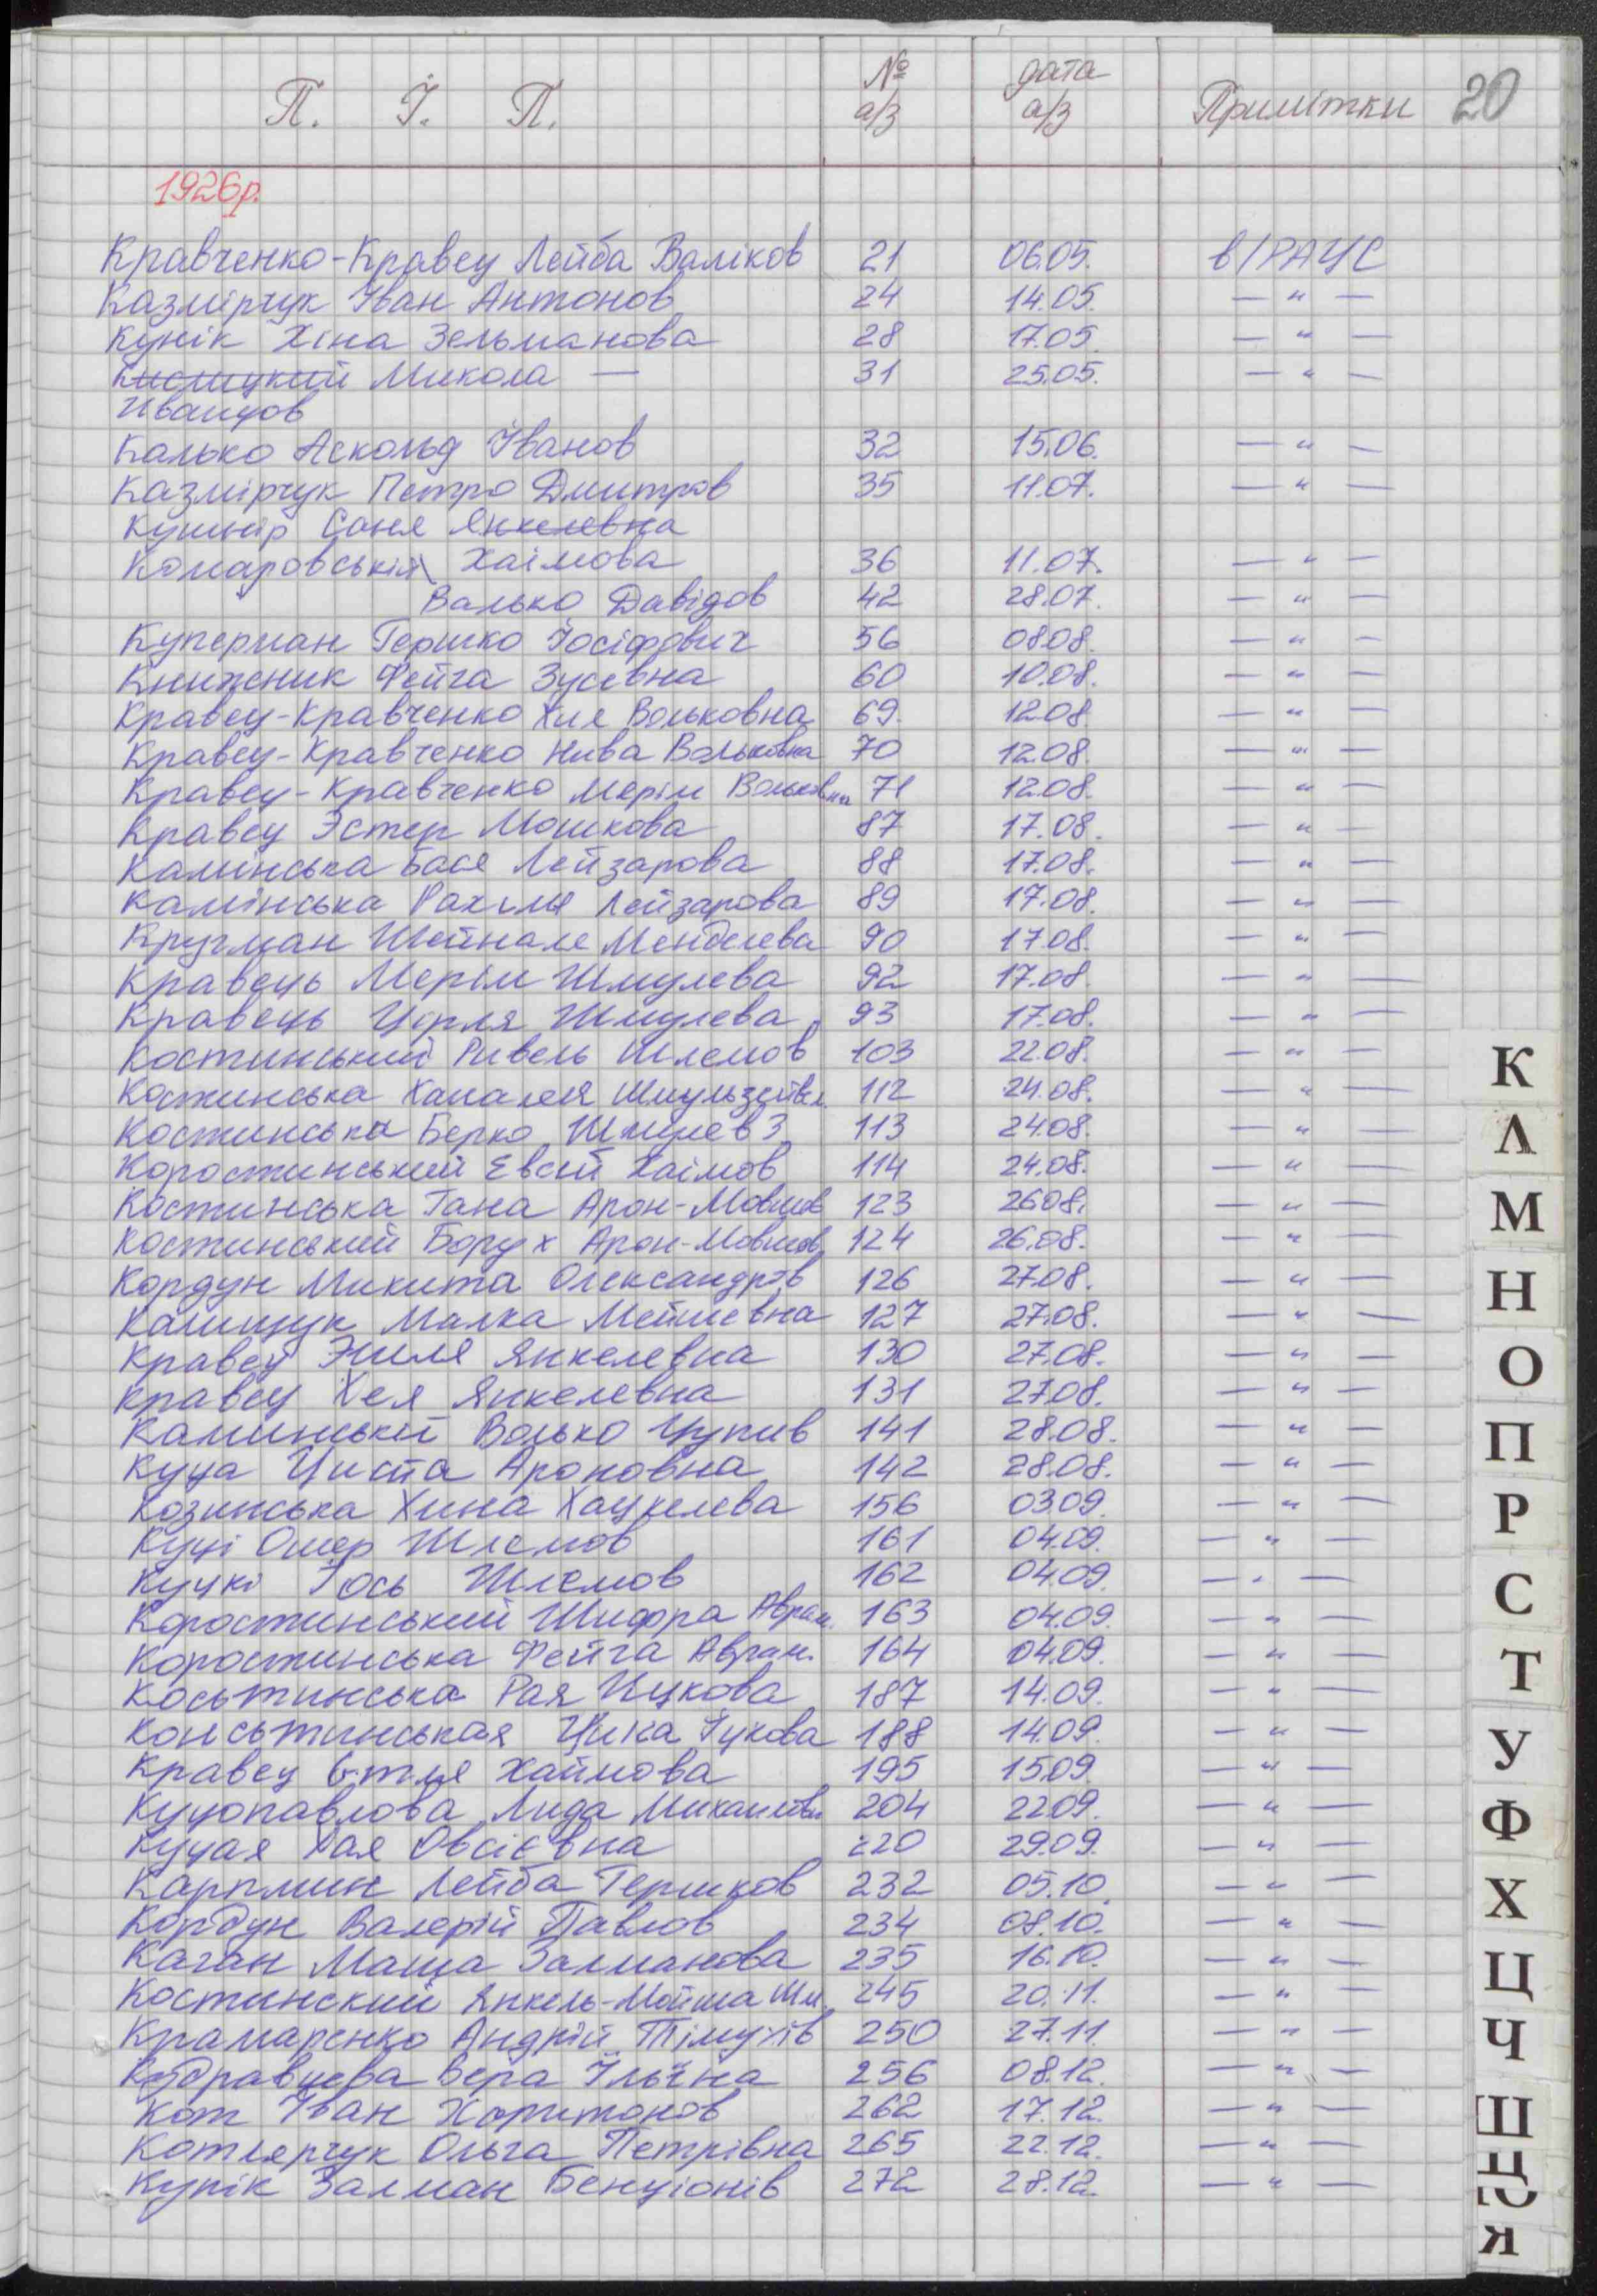 П. І. П. № а/з дата а/з Примітки 20
1926р.
Кравченко-Кравец Лейба Валіков 21 06.05. в/РАЦС
Казмірчук Іван Антонов 24 14.05. — " —
Кунік Хіна Зельманова 28 17.05. — " —
Кислицкий Микола — 31 25.05. — " —
Иванцов
Калько Аскольд Іванов 32 15.06. — " —
Казмірчук Петро Дмитров 35 11.07. — " —
Кушнір Соня Янкелевна
Комаровській Хаімова 36 11.07. — " —
Валько Давідов 42 28.07. — " —
Куперман Гершко Іосіфович 56 08.08. — " —
Книжник Фейга Зусевна 60 10.08. — " —
Кравец-Кравченко Хия Вольковна 69. 12.08 — " —
Кравец-Кравченко Нива Вольковна 70 12.08. — " —
Кравец-Кравченко Мерім Вольковна 71 12.08. — " —
Кравец Эстер Мошкова 87 17.08. — " —
Камінська Бася Лейзарова 88 17.08. — " —
Камінська Рахиля Лейзарова 89 17.08. — " —
Кругман Шейнале Менделева 90 17.08. — " —
Кравець Мерім Шмулева 92 17.08. — " —
Кравець Цорля Шмулева 93 17.08. — " —
Костинський Ривель Шлемов 103 22.08. — " —
Костинська Хапалея 112 24.08. — " —
Костинська Берко 113 24.08. — " —
Коростинський Евсій Хаімов 114 24.08. — " —
Костинська Гана Арон-Мовшов 123 26.08. — " —
Костинський Борух Арон-Мовшов 124 26.08. — " —
Кордун Микита Олександров 126 27.08. — " —
Калищук Малка Мейшевна 127 27.08. — " —
Кравец Эшля Янкелевна 130 27.08. — " —
Кравец Хея Янкелевна 131 27.08. — " —
Каминській Волько Цупив 141 28.08. — " —
Куца Циста Ароновна 142 28.08. — " —
Козинська Хина Хацкелева 156 03.09. — " —
Куці Ошер Шлемов 161 04.09. — " —
Куцкі Іось Шлемов 162 04.09. — " —
Коростинський Шифра Аврам. 163 04.09. — " —
Коростинська Фейга Аврам. 164 04.09. — " —
Косьтинська Рая Ицкова 187 14.09. — " —
Консьтинськая Цика Іцкова 188 14.09. — " —
Кравец Етля Хаймова 195 15.09. — " —
Куцопавлова Лида Михайлівн 204 22.09. — " —
Куцая Хая Овсієвна 220 29.09. — " —
Карплин Лейба Гершков 232 05.10. — " —
Кордун Валерій Павлов 234 08.10. — " —
Каган Маша Залманова 235 16.10. — " —
Костинский Янкель-Мойша Шм. 245 20.11. — " —
Крамаренко Андрій Тімухів 250 27.11. — " —
Кобравцева Вера Ільїчна 256 08.12. — " —
Кот Іван Харитонов 262 17.12. — " —
Котлярчук Ольга Петрівна 265 22.12. — " —
Купік Залман Бенціонів 272 28.12. — " —
К
Л
М
Н
О
П
Р
С
Т
У
Ф
Х
Ц
Ч
Ш
Щ
Ю
Я